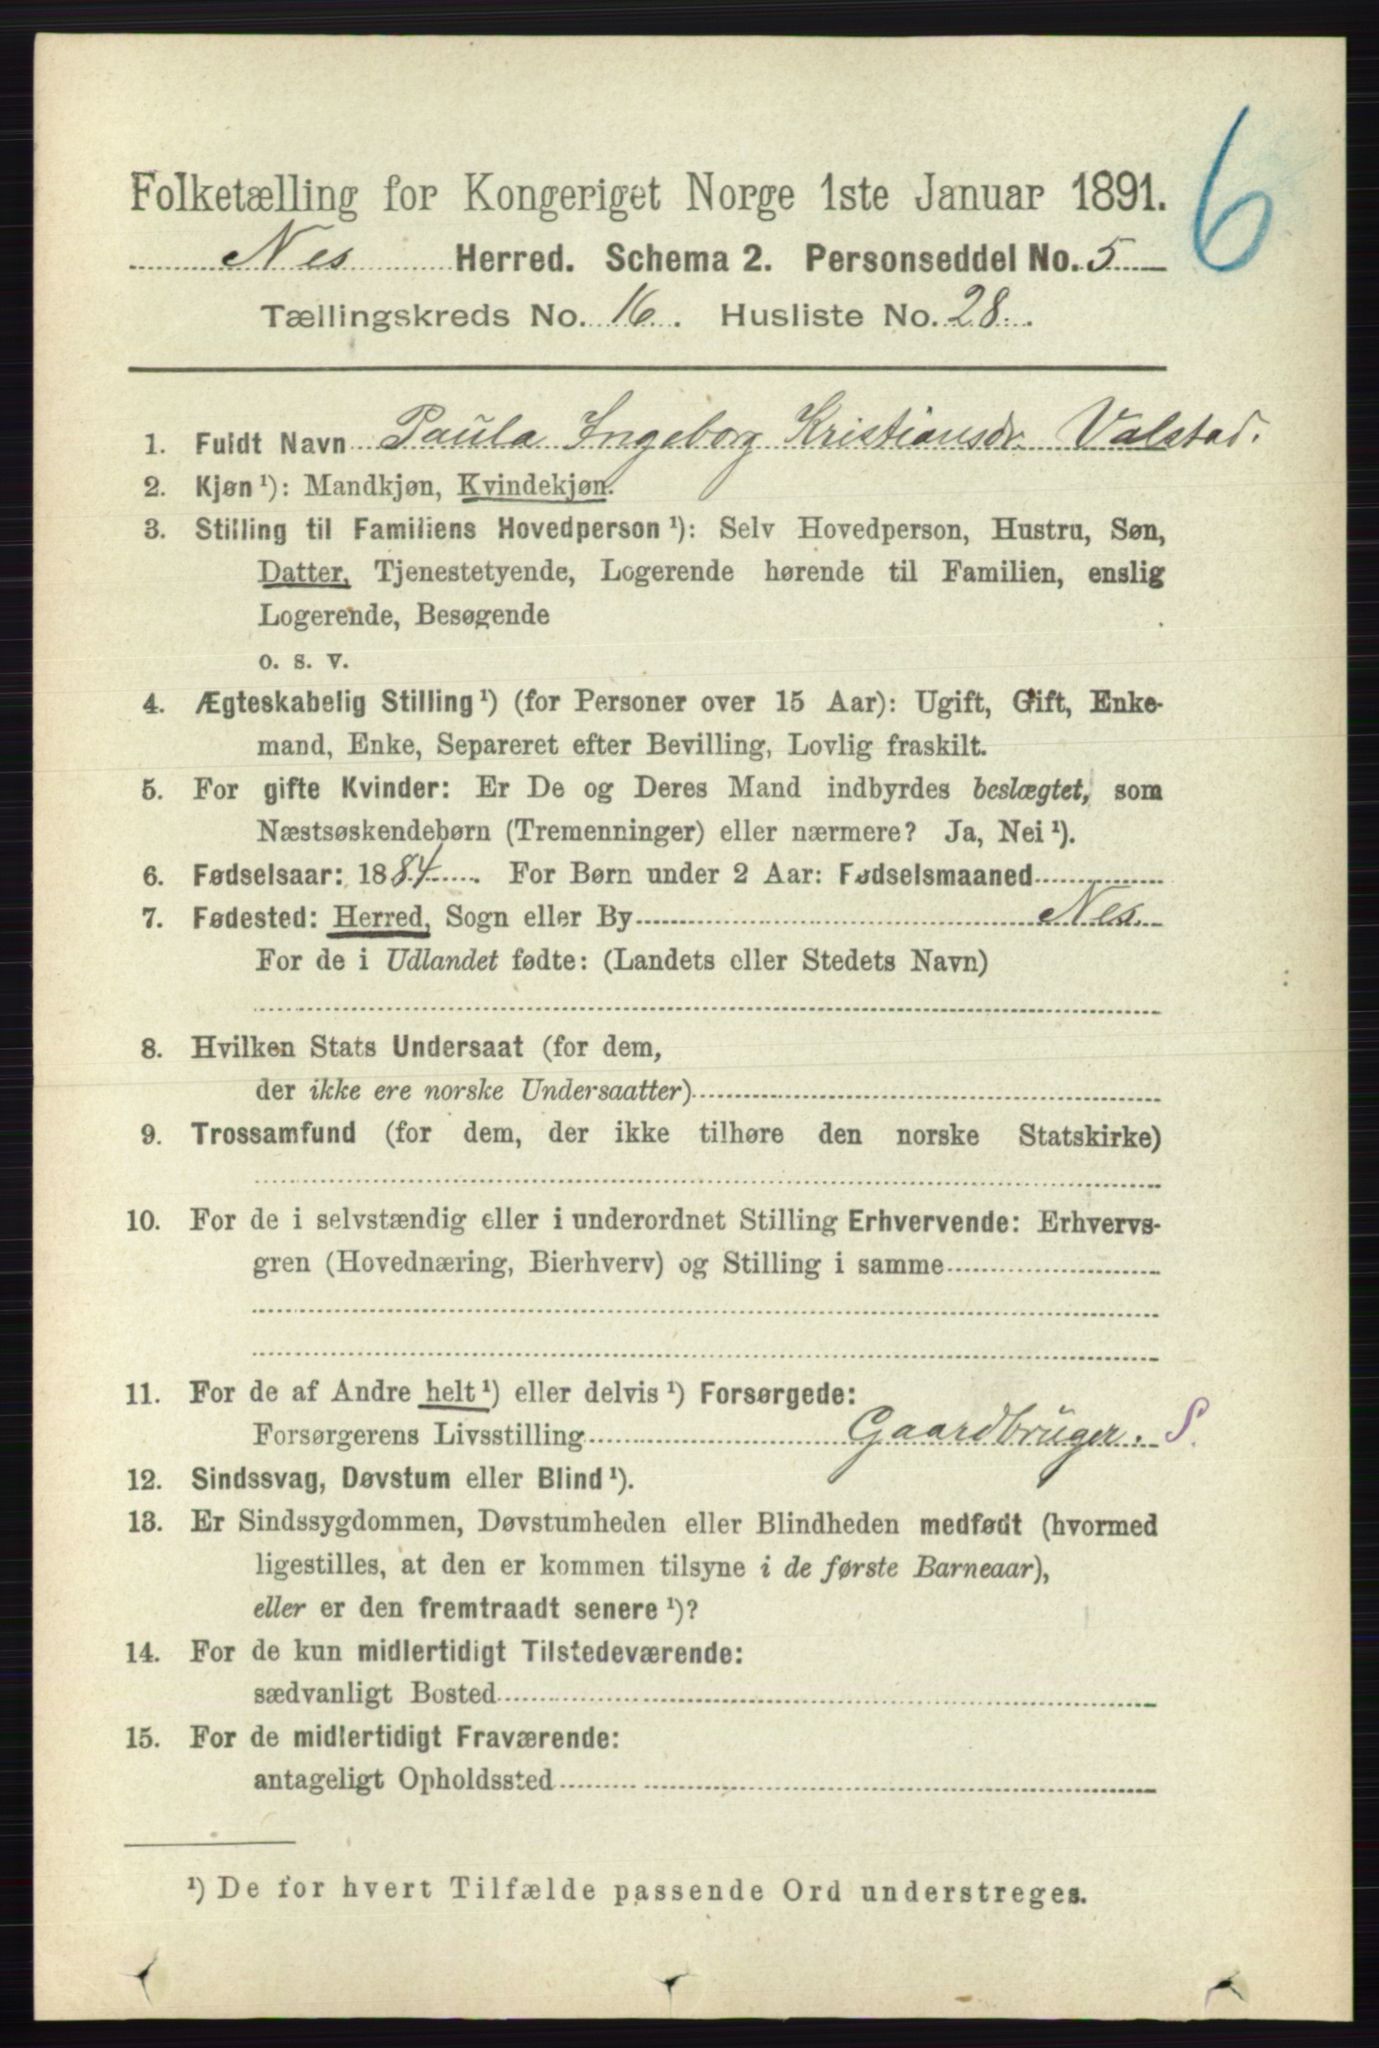 6
Folketælling for Kongeriget Norge 1ste Januar 1891.
Nes Herred. Schema 2. Personseddel No. 5
Tællingskreds No. 16. Husliste No. 28.
1. Fuldt Navn Paula Ingeborg Kristiansdr Valstad.
2. Kjøn ¹): Mandkjøn, Kvindekjøn.
3. Stilling til Familiens Hovedperson ¹): Selv Hovedperson, Hustru, Søn,
Datter, Tjenestetyende, Logerende hørende til Familien, enslig
Logerende, Besøgende
o. s. v.
4. Ægteskabelig Stilling ¹) (for Personer over 15 Aar): Ugift, Gift, Enke-
mand, Enke, Separeret efter Bevilling, Lovlig fraskilt.
5. For gifte Kvinder: Er De og Deres Mand indbyrdes beslægtet, som
Næstsøskendebørn (Tremenninger) eller nærmere? Ja, Nei ¹).
6. Fødselsaar: 1884. For Børn under 2 Aar: Fødselsmaaned
7. Fødested: Herred, Sogn eller By Nes.
For de i Udlandet fødte: (Landets eller Stedets Navn)
8. Hvilken Stats Undersaat (for dem,
der ikke ere norske Undersaatter)
9. Trossamfund (for dem, der ikke tilhøre den norske Statskirke)
10. For de i selvstændig eller i underordnet Stilling Erhvervende: Erhvervs-
gren (Hovednæring, Bierhverv) og Stilling i samme
11. For de af Andre helt ¹) eller delvis ¹) Forsørgede:
Forsørgerens Livsstilling Gaardbruger. S.
12. Sindssvag, Døvstum eller Blind ¹).
13. Er Sindssygdommen, Døvstumheden eller Blindheden medfødt (hvormed
ligestilles, at den er kommen tilsyne i de første Barneaar),
eller er den fremtraadt senere ¹)?
14. For de kun midlertidigt Tilstedeværende:
sædvanligt Bosted
15. For de midlertidigt Fraværende:
antageligt Opholdssted
¹) De for hvert Tilfælde passende Ord understreges.